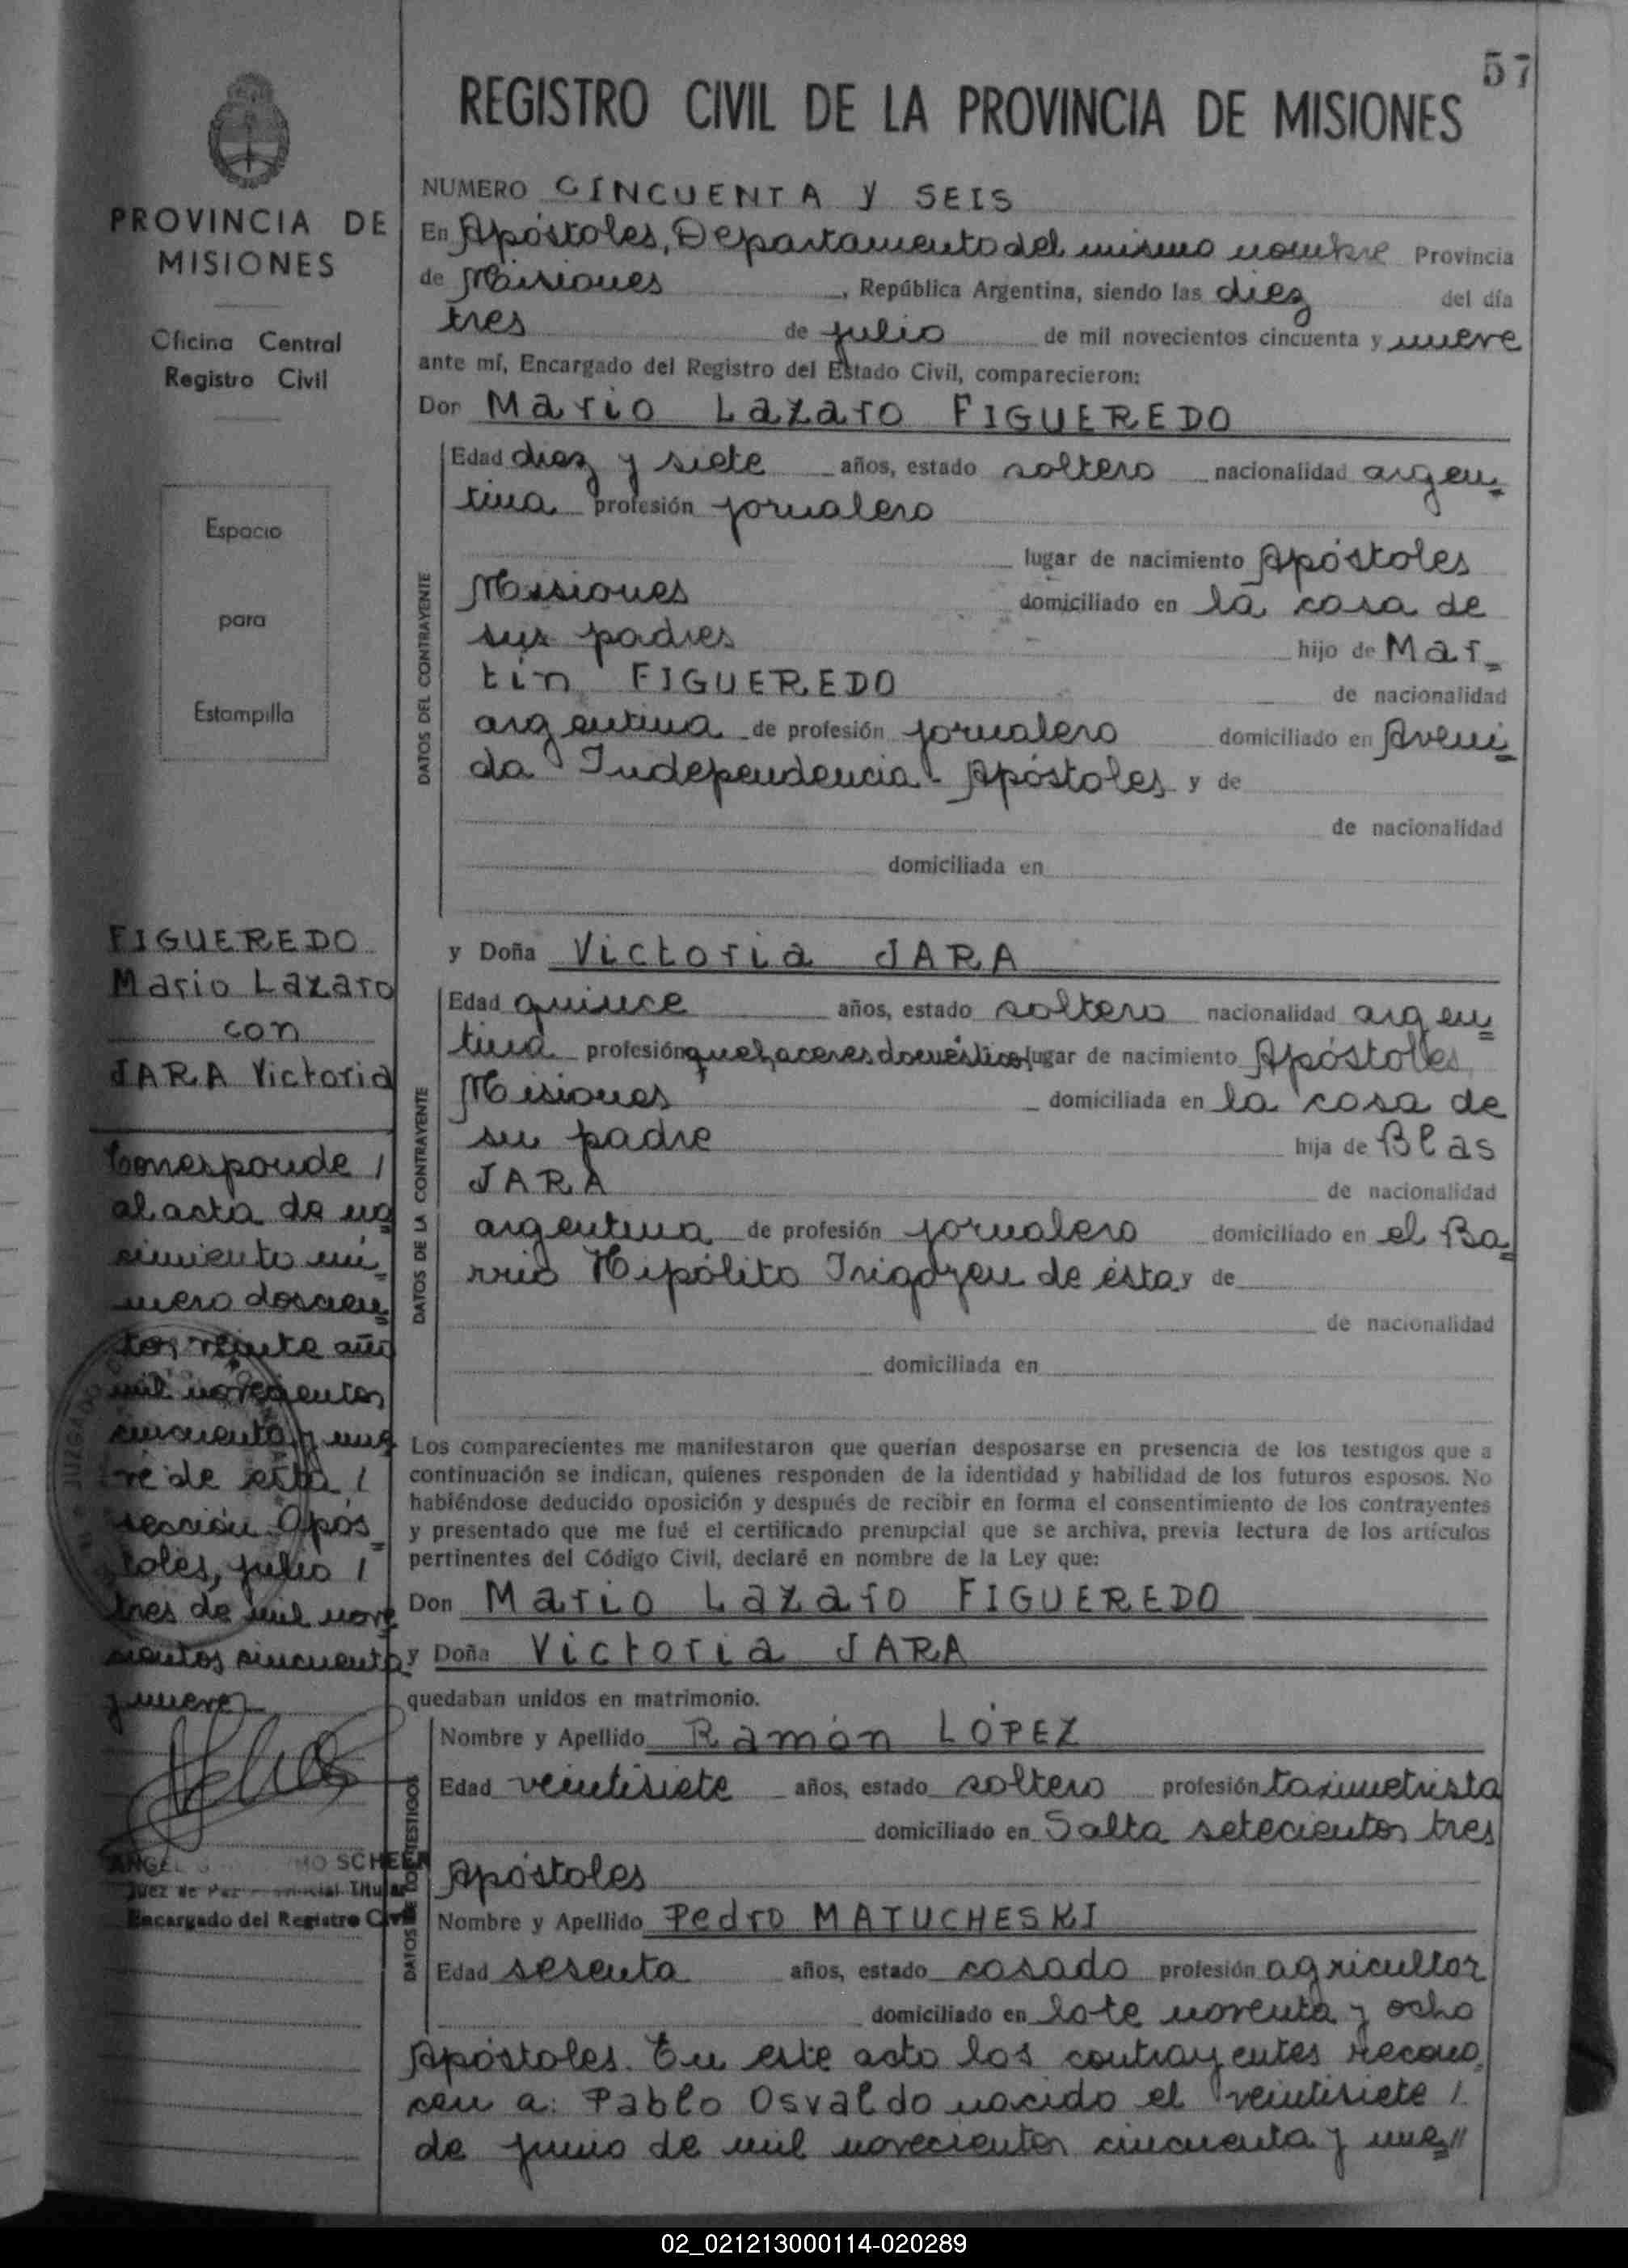 57
REGISTRO CIVIL DE LA PROVINCIA DE MISIONES
PROVINCIA DE
MISIONES
Oficina Central
Registro Civil
Espacio
para
Estampilla
NUMERO CINCUENTA Y SEIS
En Apóstoles, Departamento del mismo nombre Provincia
de Misiones, República Argentina, siendo las diez del día
tres de julio de mil novecientos cincuenta y nueve
ante mí, Encargado del Registro del Estado Civil, comparecieron:
Don Mario Lazaro FIGUEREDO
DATOS DEL CONTRAYENTE
Edad diez y siete años, estado soltero nacionalidad argen=
tina profesión jornalero
lugar de nacimiento Apóstoles
Misiones domiciliado en la casa de
sus padres hijo de Mar=
tin FIGUEREDO de nacionalidad
argentina de profesión jornalero domiciliado en Aveni=
da Independencia - Apóstoles y de
de nacionalidad
domiciliada en
y Doña Victoria JARA
DATOS DE LA CONTRAYENTE
Edad quince años, estado soltero nacionalidad argen=
tina profesión quehaceres domésticos lugar de nacimiento Apóstoles
Misiones domiciliada en la casa de
su padre hija de Blas
JARA de nacionalidad
argentina de profesión jornalero domiciliado en el Ba=
rrio Hipólito Irigoyen de ésta y de
de nacionalidad
domiciliada en
Los comparecientes me manifestaron que querían desposarse en presencia de los testigos que a
continuación se indican, quienes responden de la identidad y habilidad de los futuros esposos. No
habiéndose deducido oposición y después de recibir en forma el consentimiento de los contrayentes
y presentado que me fué el certificado prenupcial que se archiva, previa lectura de los artículos
pertinentes del Código Civil, declaré en nombre de la Ley que:
Don Mario Lazaro FIGUEREDO
y Doña Victoria JARA
quedaban unidos en matrimonio.
DATOS DE LOS TESTIGOS
Nombre y Apellido Ramón LÓPEZ
Edad veintisiete años, estado soltero profesión taximetrista
domiciliado en Salta setecientos tres
Apóstoles
Nombre y Apellido Pedro MATUCHESKI
Edad sesenta años, estado casado profesión agricultor
domiciliado en lote noventa y ocho
Apóstoles. En este acto los contrayentes recono=
cen a: Pablo Osvaldo nacido el veintisiete /
de junio de mil novecientos cincuenta y nue=//
FIGUEREDO
Mario Lazaro
con
JARA Victoria
Corresponde /
al acta de na
cimiento nú=
mero doscien=
tos veinte año
mil novecientos
cincuenta y nue
ve de esta /
sección. Após=
toles, julio /
tres de mil nove
cientos cincuenta
y nueve
JUZGADO
ANGEL SCHEER
Juez de Paz Titular
Encargado del Registro Civil
02_021213000114-020289